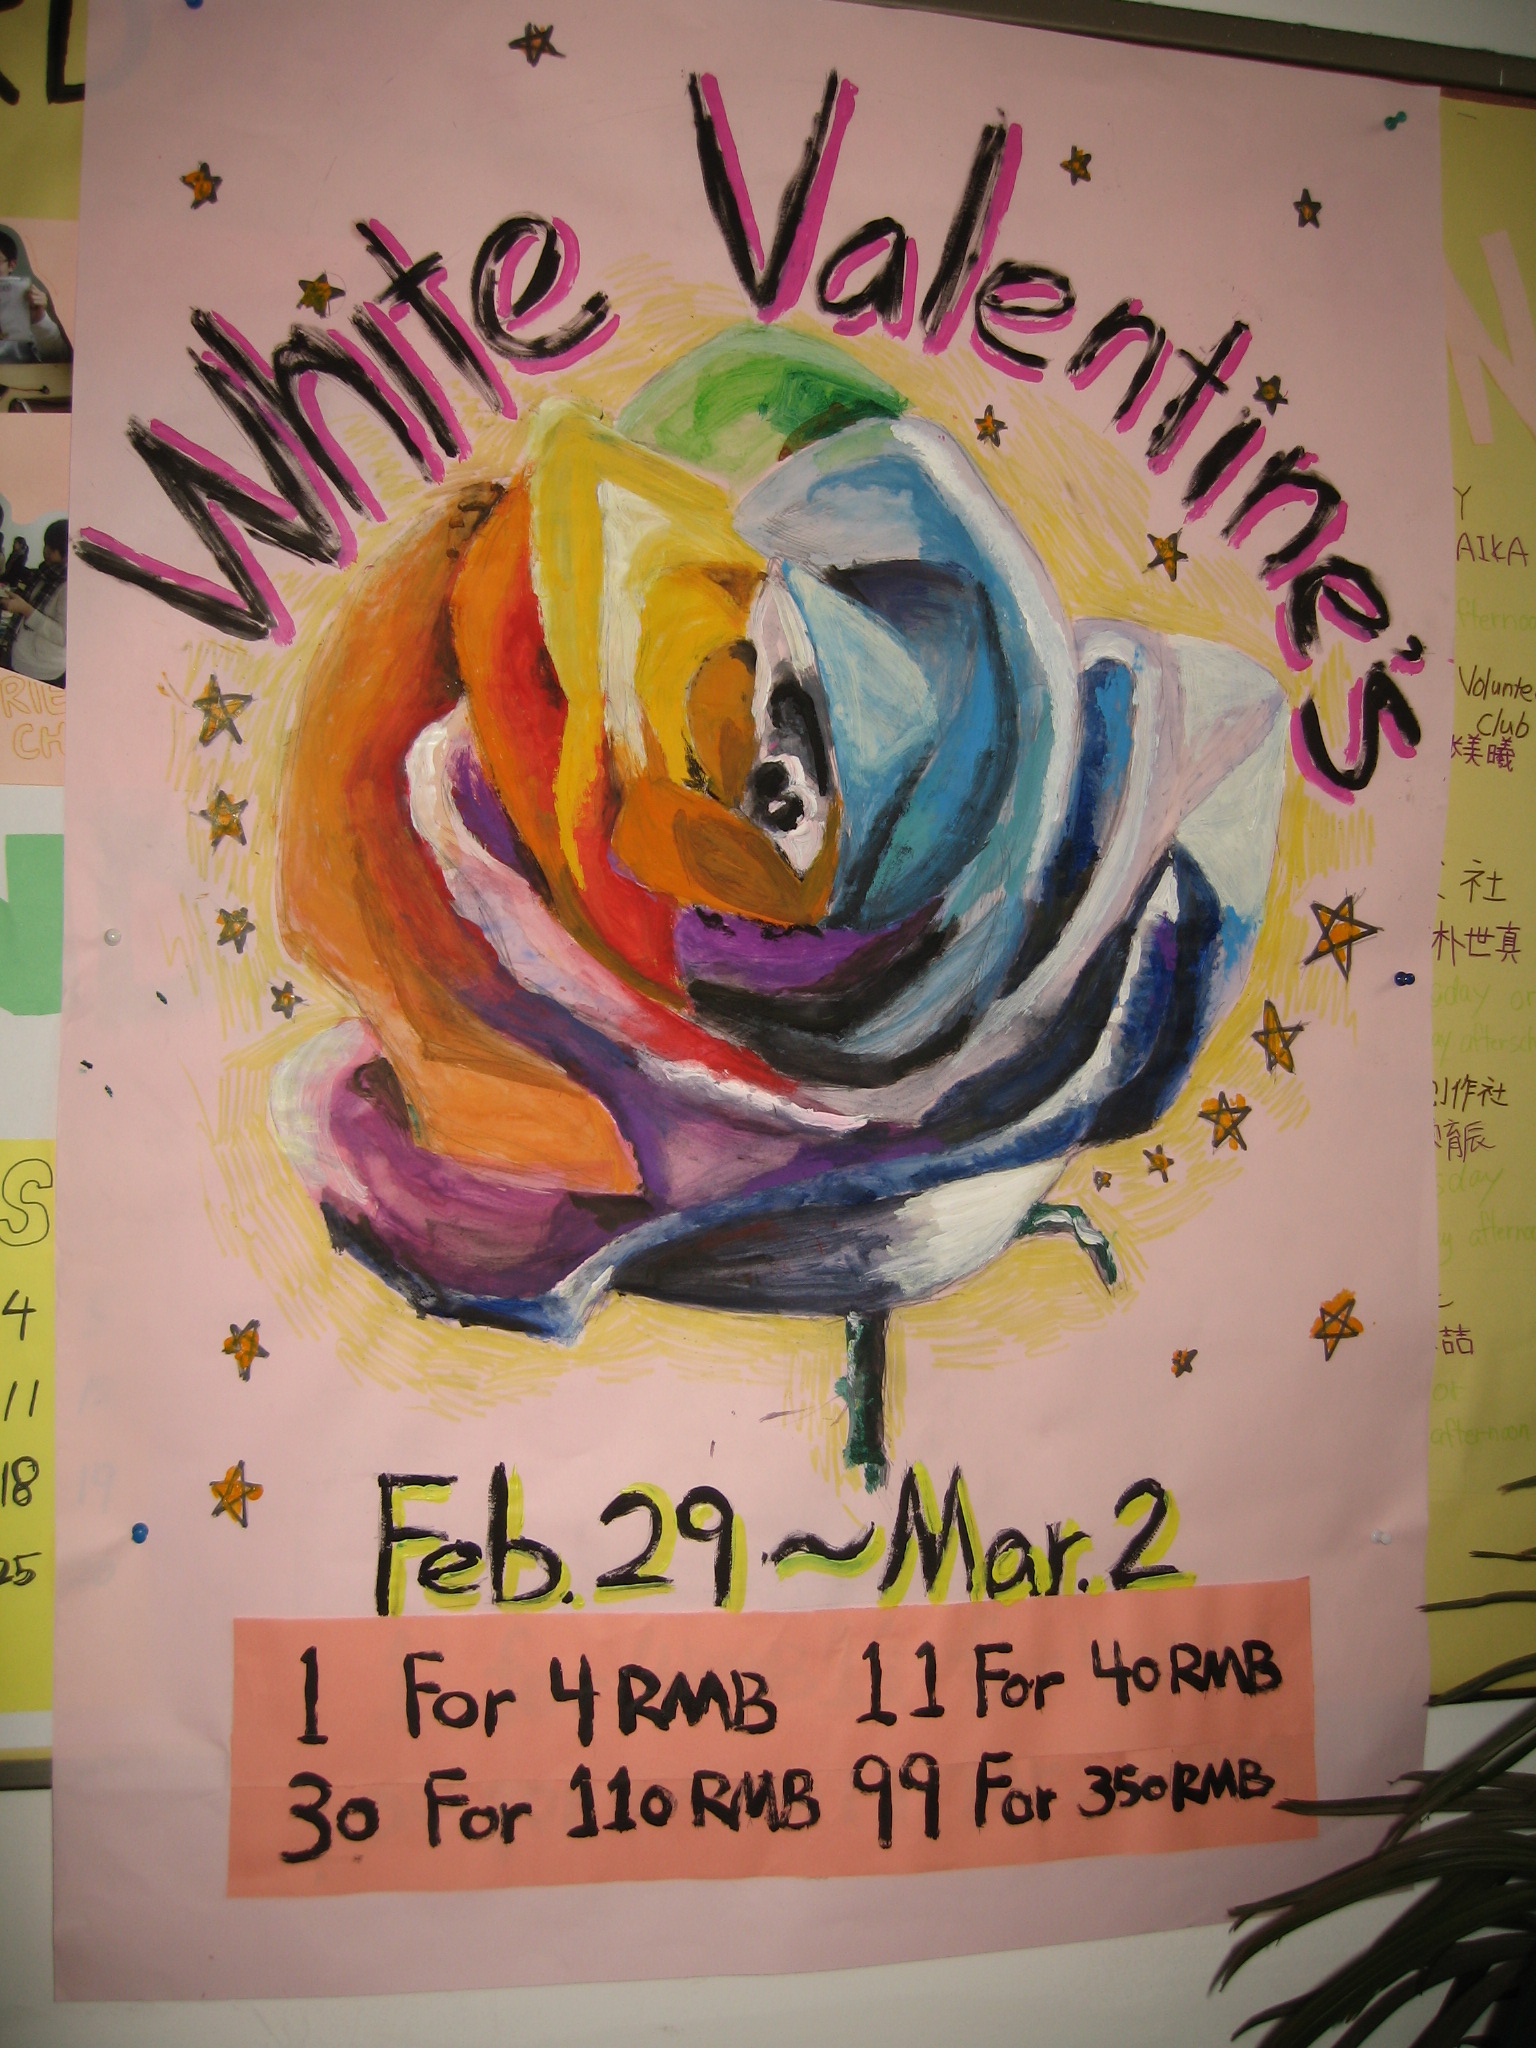 White Valentine's
Feb. 29 ~ Mar. 2
1 For 4 RMB 11 For 40 RMB
30 For 110 RMB 99 For 350 RMB
S
4
11
18
25
Y
AIKA
Volunte
Club
美曦
社
朴世真
作社
育辰
afternoon